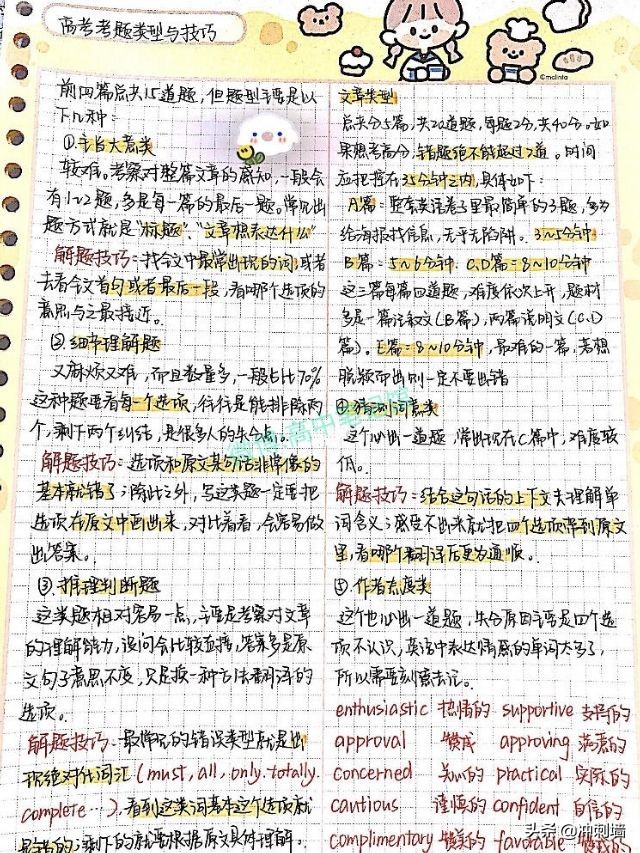 高考考题类型与技巧
©malinta
前四篇总共15道题，但题型主要是以
下几种：
①主旨大意类
较难。考察对整篇文章的感知，一般会
有1~2题，多是每一篇的最后一题。常见出
题方式就是“标题”、“文章想表达什么”
解题技巧：找全文中最常出现的词；或者
去看全文首句或者最后一段，看哪个选项的
意思与之最接近。
②细节理解题
又麻烦又难，而且数量多，一般占比70%
这种题要看每一个选项，往往是能排除两
个，剩下两个纠结，是很多人的失分点。
解题技巧：选项和原文某句话非常像的
基本就错了；除此之外，写这类题一定要把
选项在原文中画出来，对比着看，会容易做
出答案。
③推理判断题
这类题相对容易一点，主要是考察对文章
的理解能力，设问会比较直接，答案多是原
文句子意思不变，只是换一种方法翻译的
选项。
解题技巧：最常见的错误类型就是出
现绝对化词汇(must, all, only, totally,
complete…)，看到这类词基本这个选项就
是错的；剩下的就要根据原文具体理解。
文章类型
总共分5篇，共20道题，每题2分，共40分。如
果想考高分，错题绝不能超过2道。时间
应把控在35分钟之内，具体如下：
A篇：整套英语卷子里最简单的3题，多为
给海报找信息，无乎无陷阱。3~5分钟
B篇：5~6分钟. C,D篇=8~10分钟
这三篇每篇四道题，难度依次上升，题材
多是一篇记叙文(B篇)，两篇说明文(C,D
篇)。E篇=8~10分钟，最难的一篇，若想
脱颖而出则一定不要出错
④猜测词意类
这个必出一道题，常出现在C篇中，难度较
低。
解题技巧：结合这句话的上下文去理解单
词含义；感受不出来就把四个选项带到原文
里，看哪个翻译后更为通顺。
⑤作者态度类
这个也必出一道题，失分原因主要是四个选
项不认识，英语中表达情感的单词太多了，
所以需要刻意去记。
enthusiastic 热情的 supportive 支持的
approval 赞成 approving 满意的
concerned 关心的 practical 实际的
cautious 谨慎的 confident 自信的
complimentary 赞美的 favorable 赞成的
头条@冲刺墙